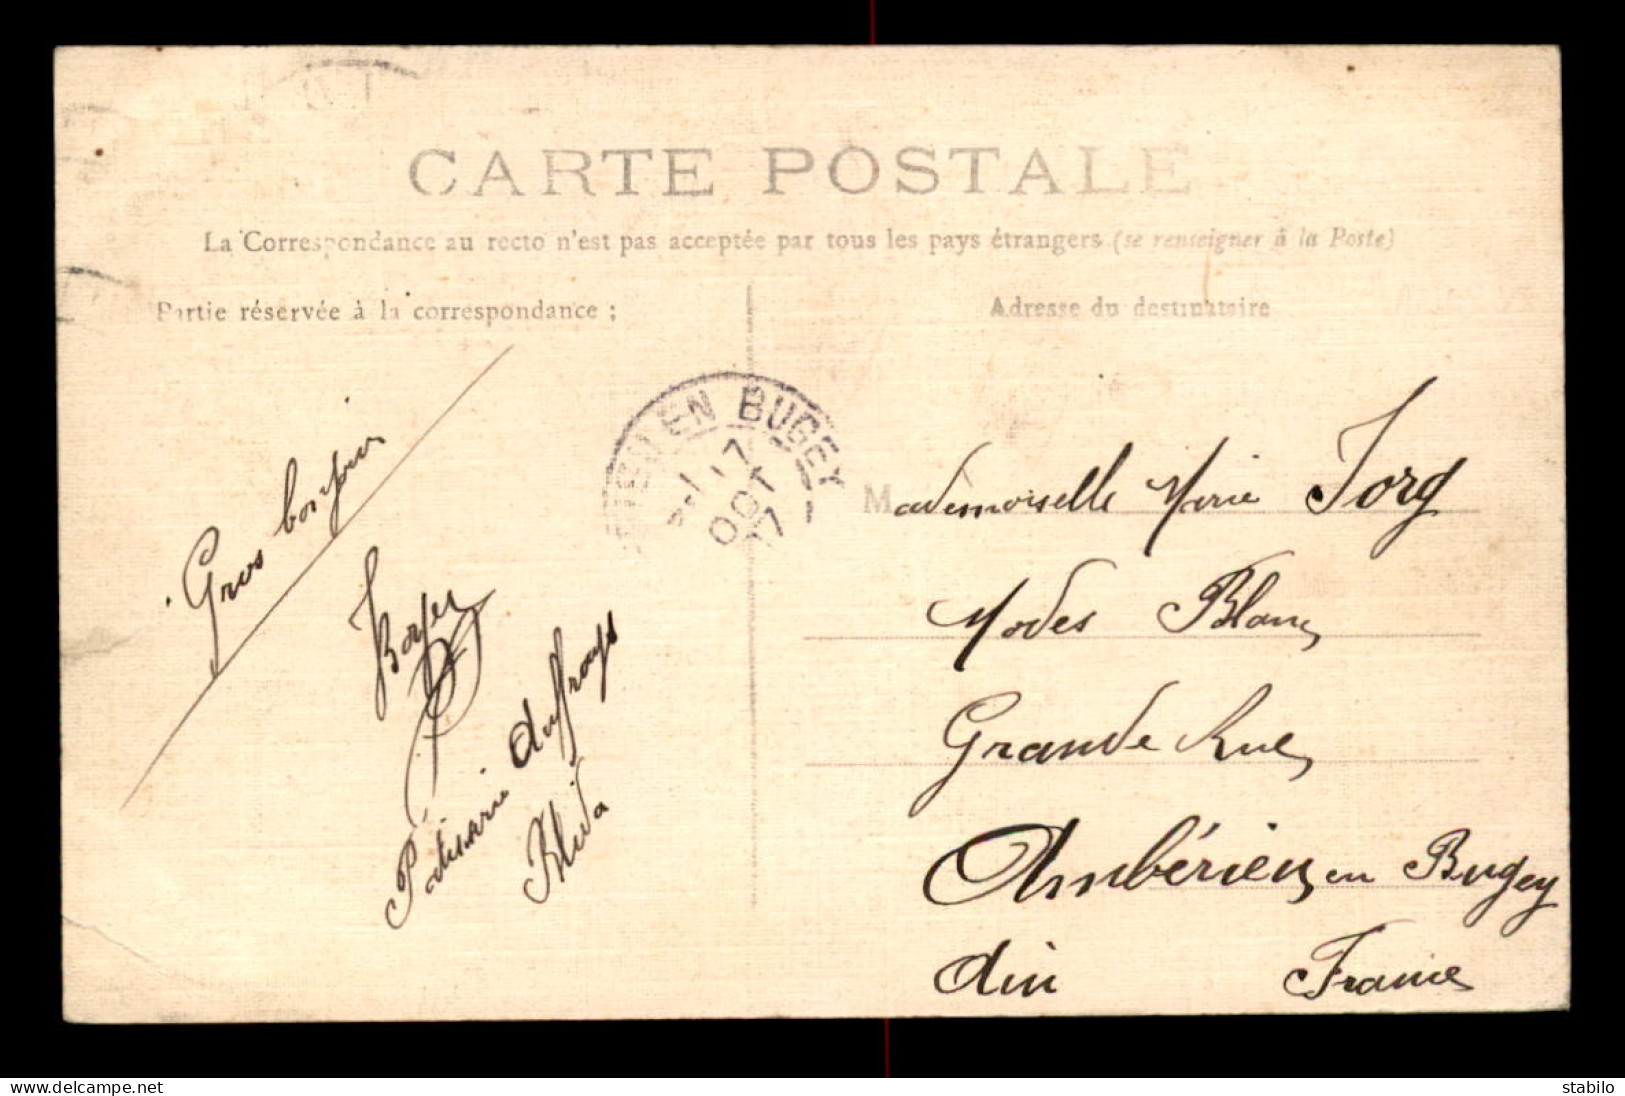 CARTE POSTALE
La Correspondance au recto n'est pas acceptée par tous les pays étrangers (se renseigner à la Poste)
Partie réservée à la correspondance :
Adresse du destinataire
Gros bonjour
Boyer
Patisserie
Blida
EN BUGEY
17
OCT
Mademoiselle Marie Jorg
Modes Blanc
Grande Rue
Ambérieu en Bugey
Ain France
www.delcampe.net
stabilo